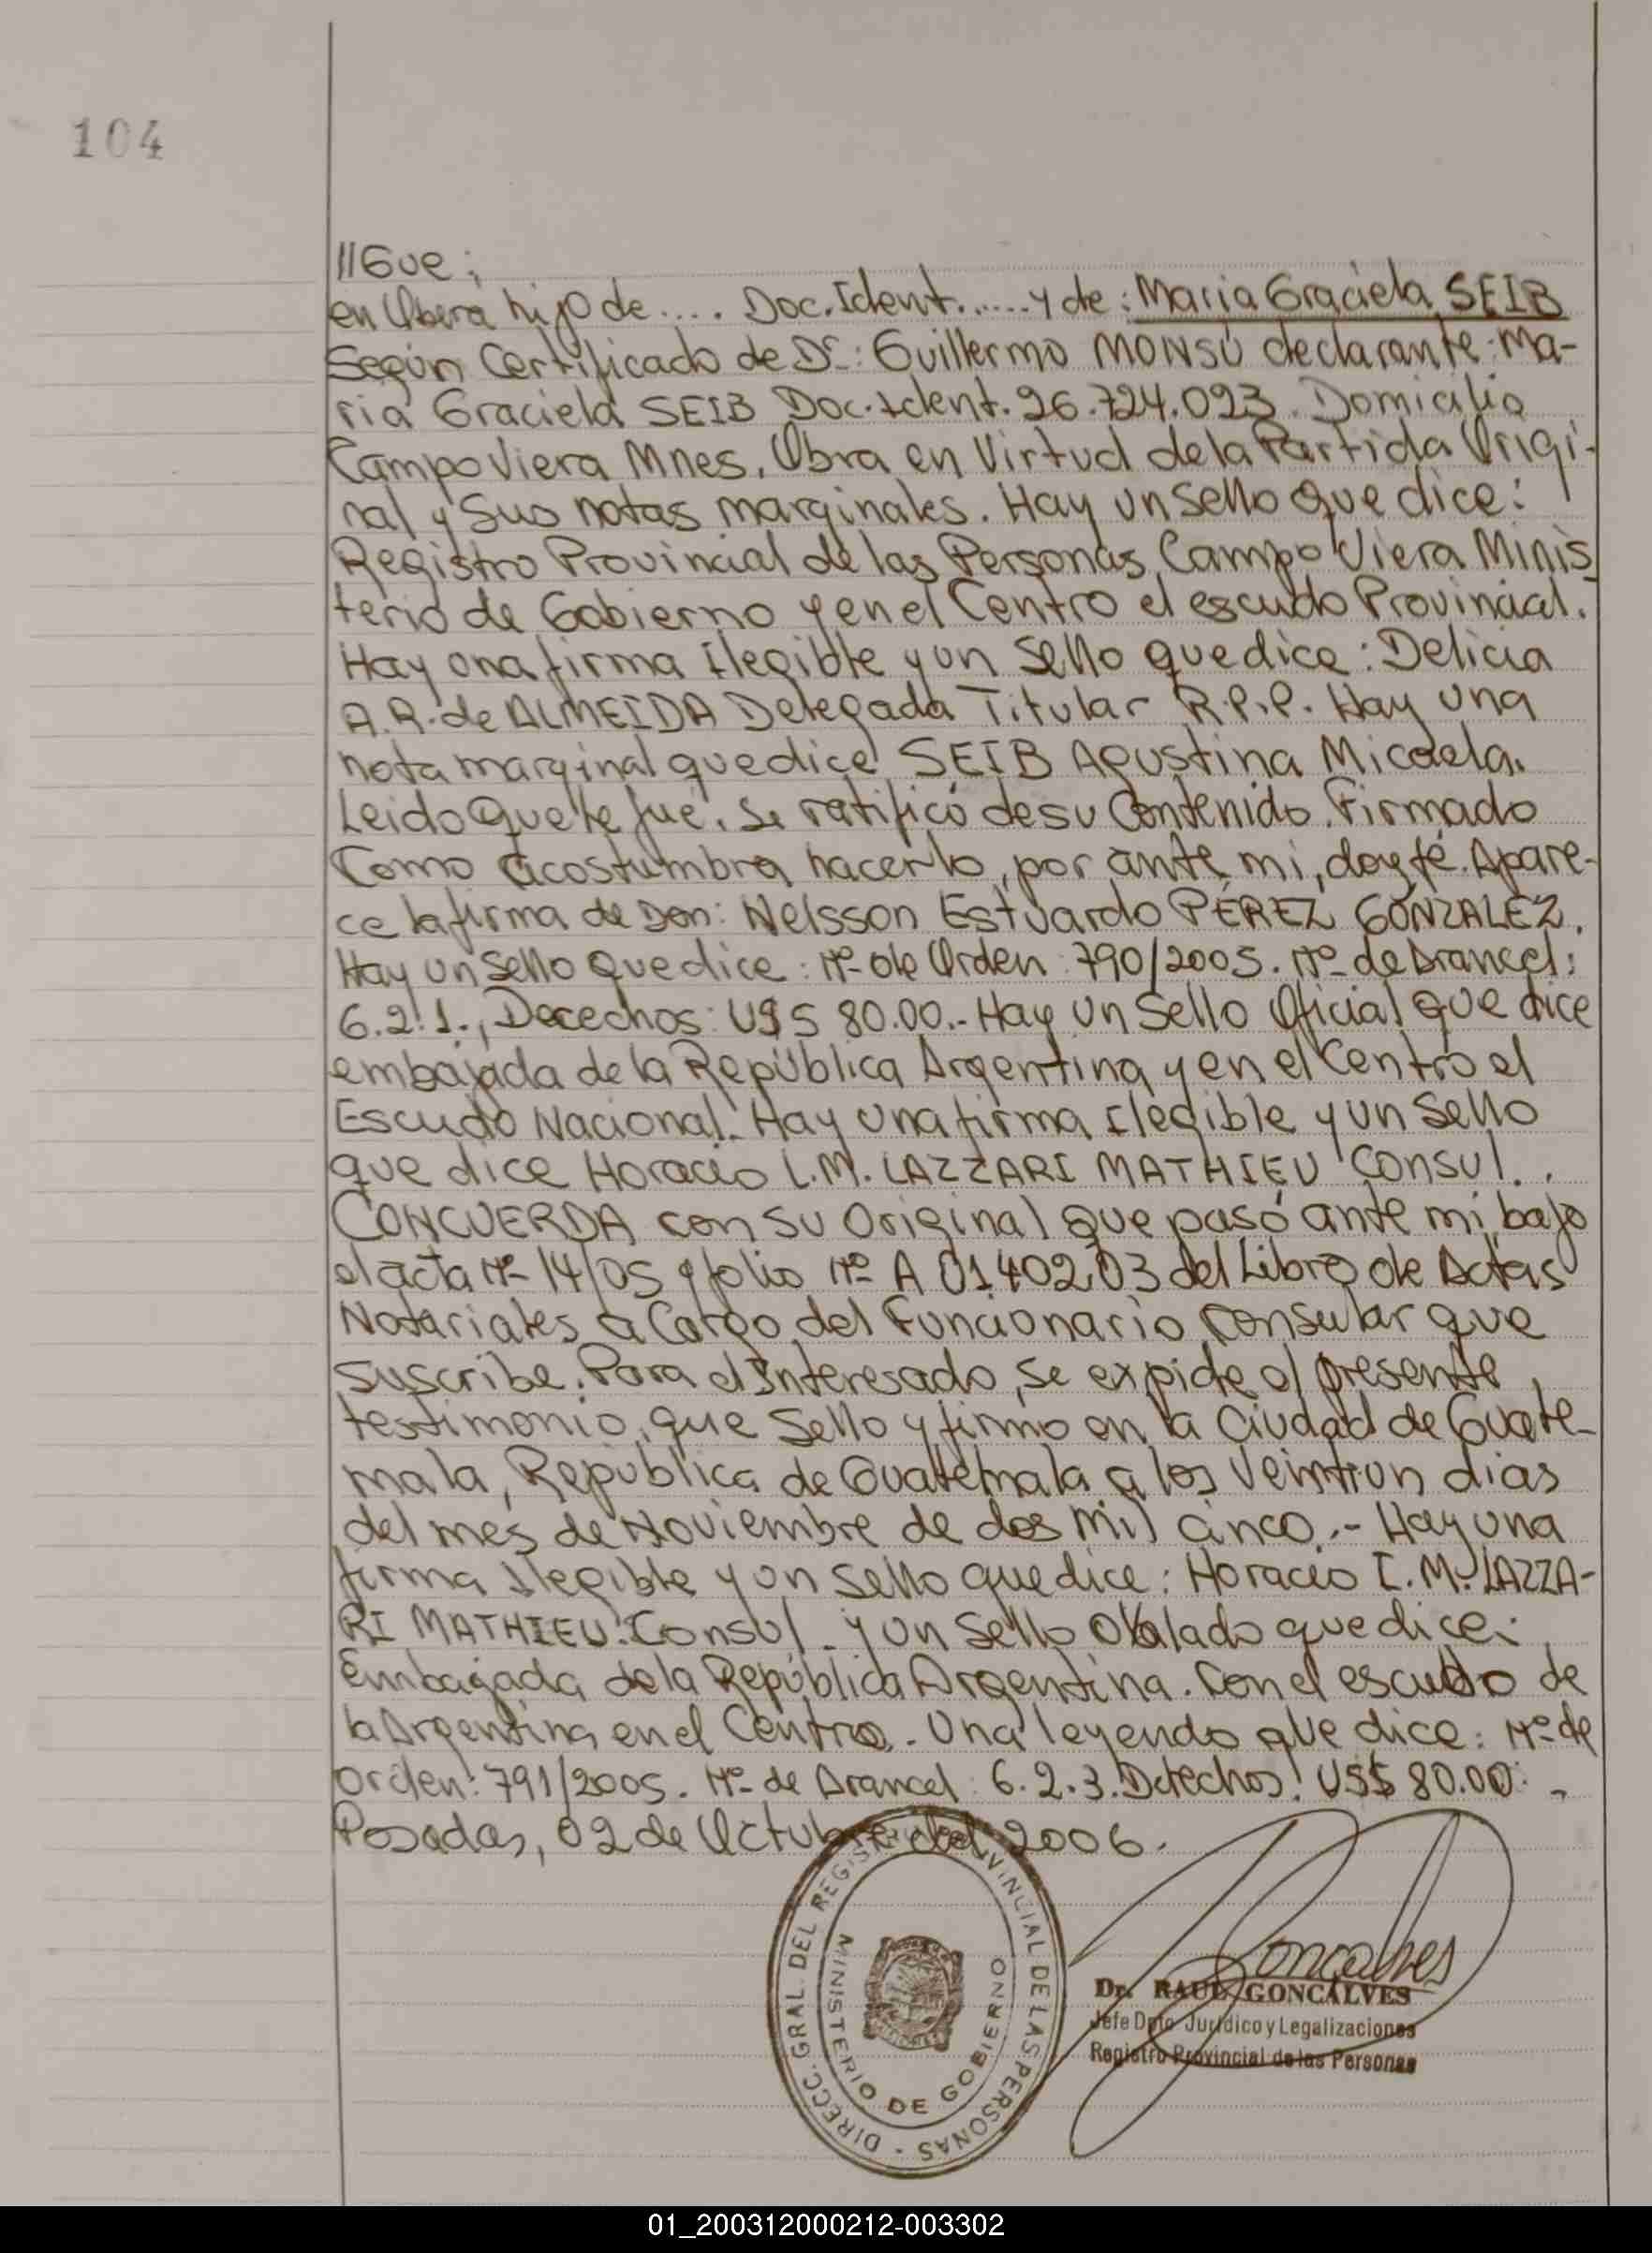 104
//Gue:
en Oberá hijo de.... Doc. Ident......y de: Maria Graciela SEIB
Según Certificado de Dr: Guillermo MONSÚ declarante: Ma-
ria Graciela SEIB Doc. Ident. 26.724.093. Domicilio
Campo Viera Mnes. Obra en Virtud de la Partida Origi-
nal y Sus notas marginales. Hay un Sello que dice:
Registro Provincial de las Personas Campo Viera Minis
terio de Gobierno y en el Centro el escudo Provincial.
Hay una firma Ilegible y un Sello que dice: Delicia
A.R. de ALMEIDA Delegada Titular R.P.P. Hay una
nota marginal que dice SEIB Agustina Micaela.
Leido que le fué. Se ratificó de su Contenido. Firmado
Como acostumbra hacerlo, por ante mi, doy fé. Apare-
ce la firma de Don: Nelsson Estuardo PÉREZ GONZALEZ.
Hay un Sello que dice: Nº de Orden: 790/2005. Nº de Arancel:
6.2.1., Derechos: U$S 80.00.- Hay un Sello Oficial que dice
embajada de la República Argentina y en el Centro el
Escudo Nacional. Hay una firma Ilegible y un Sello
que dice Horacio L.M. LAZZARI MATHIEU Consul..
CONCUERDA con su Original que pasó ante mi bajo
el acta Nº 14/05 y folio Nº A 01402,03 del Libro de Actas
Notariales a Cargo del Funcionario Consular que
Suscribe. Para el Interesado, se expide el presente
testimonio, que Sello y firmo en la Ciudad de Guate-
mala, República de Guatemala a los Veintiun dias
del mes de Noviembre de dos mil cinco.- Hay una
firma Ilegible y un Sello que dice: Horacio I.M. LAZZA-
RI MATHIEU. Consul. y un Sello Ovalado que dice:
Embagada de la República Argentina. Con el escudo de
la Argentina en el Centro. Una leyendo que dice: Nº de
Orden: 791/2005. Nº de Arancel: 6.2.3. Derechos: U$$ 80.00.
Posadas, 02 de Octubre del 2006.
DIRECC. GRAL. DEL REGISTRO PROVINCIAL DE LAS PERSONAS -
MINISTERIO DE GOBIERNO
Goncalves
Dr. RAUL GONCALVES
Jefe Dpto. Jurídico y Legalizaciones
Registro Provincial de las Personas
01_200312000212-003302